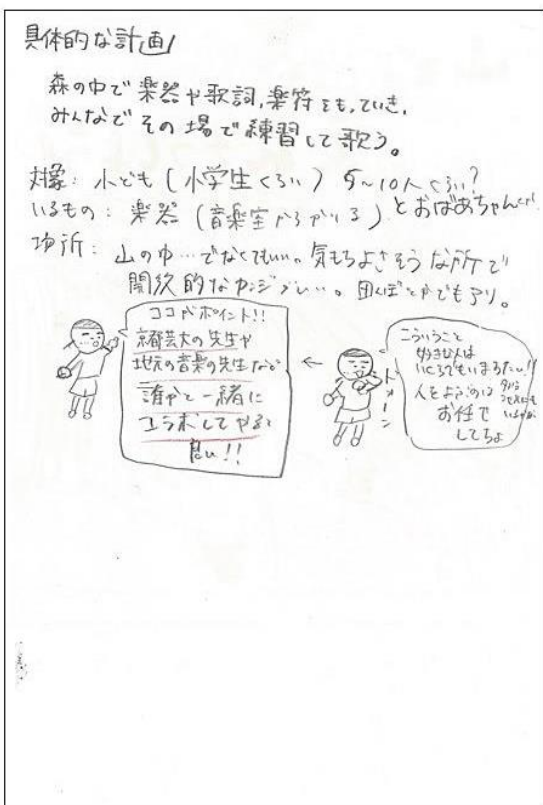 具体的な計画
森の中で楽器や歌詞,楽符をもっていき,
みんなでその場で練習して歌う。
対象: 小ども (小学生くらい) 5~10人くらい?
とおばあちゃん
いるもの: 楽器 (音楽室からかりる)
場所: 山の中…でなくてもいい。気もちよさそうな所で
開放的なカンジがいい。田んぼとかでもアリ。
ココがポイント!!
京都芸大の先生や
地元の音楽の先生など
誰かと一緒に
コラボしてやると
良い!!
←
こういうこと
好きな人は
いくらでもいまるたい!!
人をよぶのは
お任で
してちょ